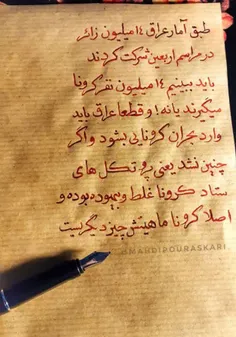 طبق آمار عراق ١٤ میلیون زائر
در مراسم اربعین شرکت کردند
باید ببینیم ١٤ میلیون نفر کرونا
میگیرند یا نه! و قطعا عراق باید
وارد بحران کرونایی بشود و اگر
چنین نشد یعنی پروتکل های
ستاد کرونا غلط و بیهوده بوده و
اصلا کرونا ماهیتش چیز دیگریست
@MAHDIPOURASKARI